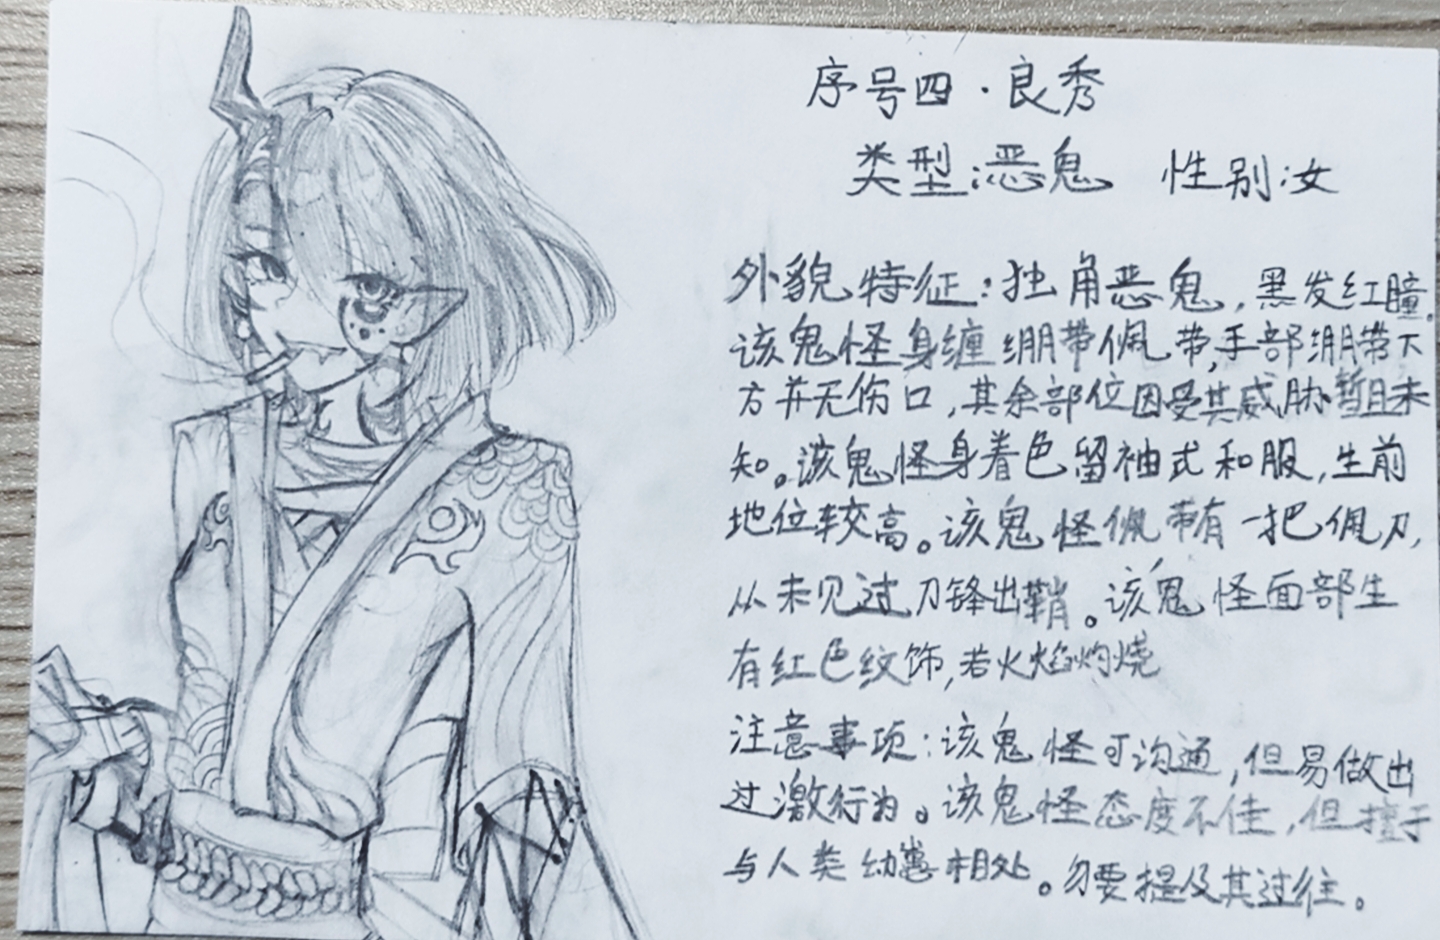 序号四·良秀
类型:恶鬼 性别:女
外貌特征:独角恶鬼,黑发红瞳.
该鬼怪身缠绷带佩带,手部绷带下
方并无伤口,其余部位因受其威胁暂且未
知。该鬼怪身着色留袖式和服,生前
地位较高。该鬼怪佩带有一把佩刀,
从未见过刀锋出鞘。该鬼怪面部生
有红色纹饰,若火焰灼烧
注意事项:该鬼怪可沟通,但易做出
过激行为。该鬼怪态度不佳,但擅于
与人类幼崽相处。勿要提及其过往。